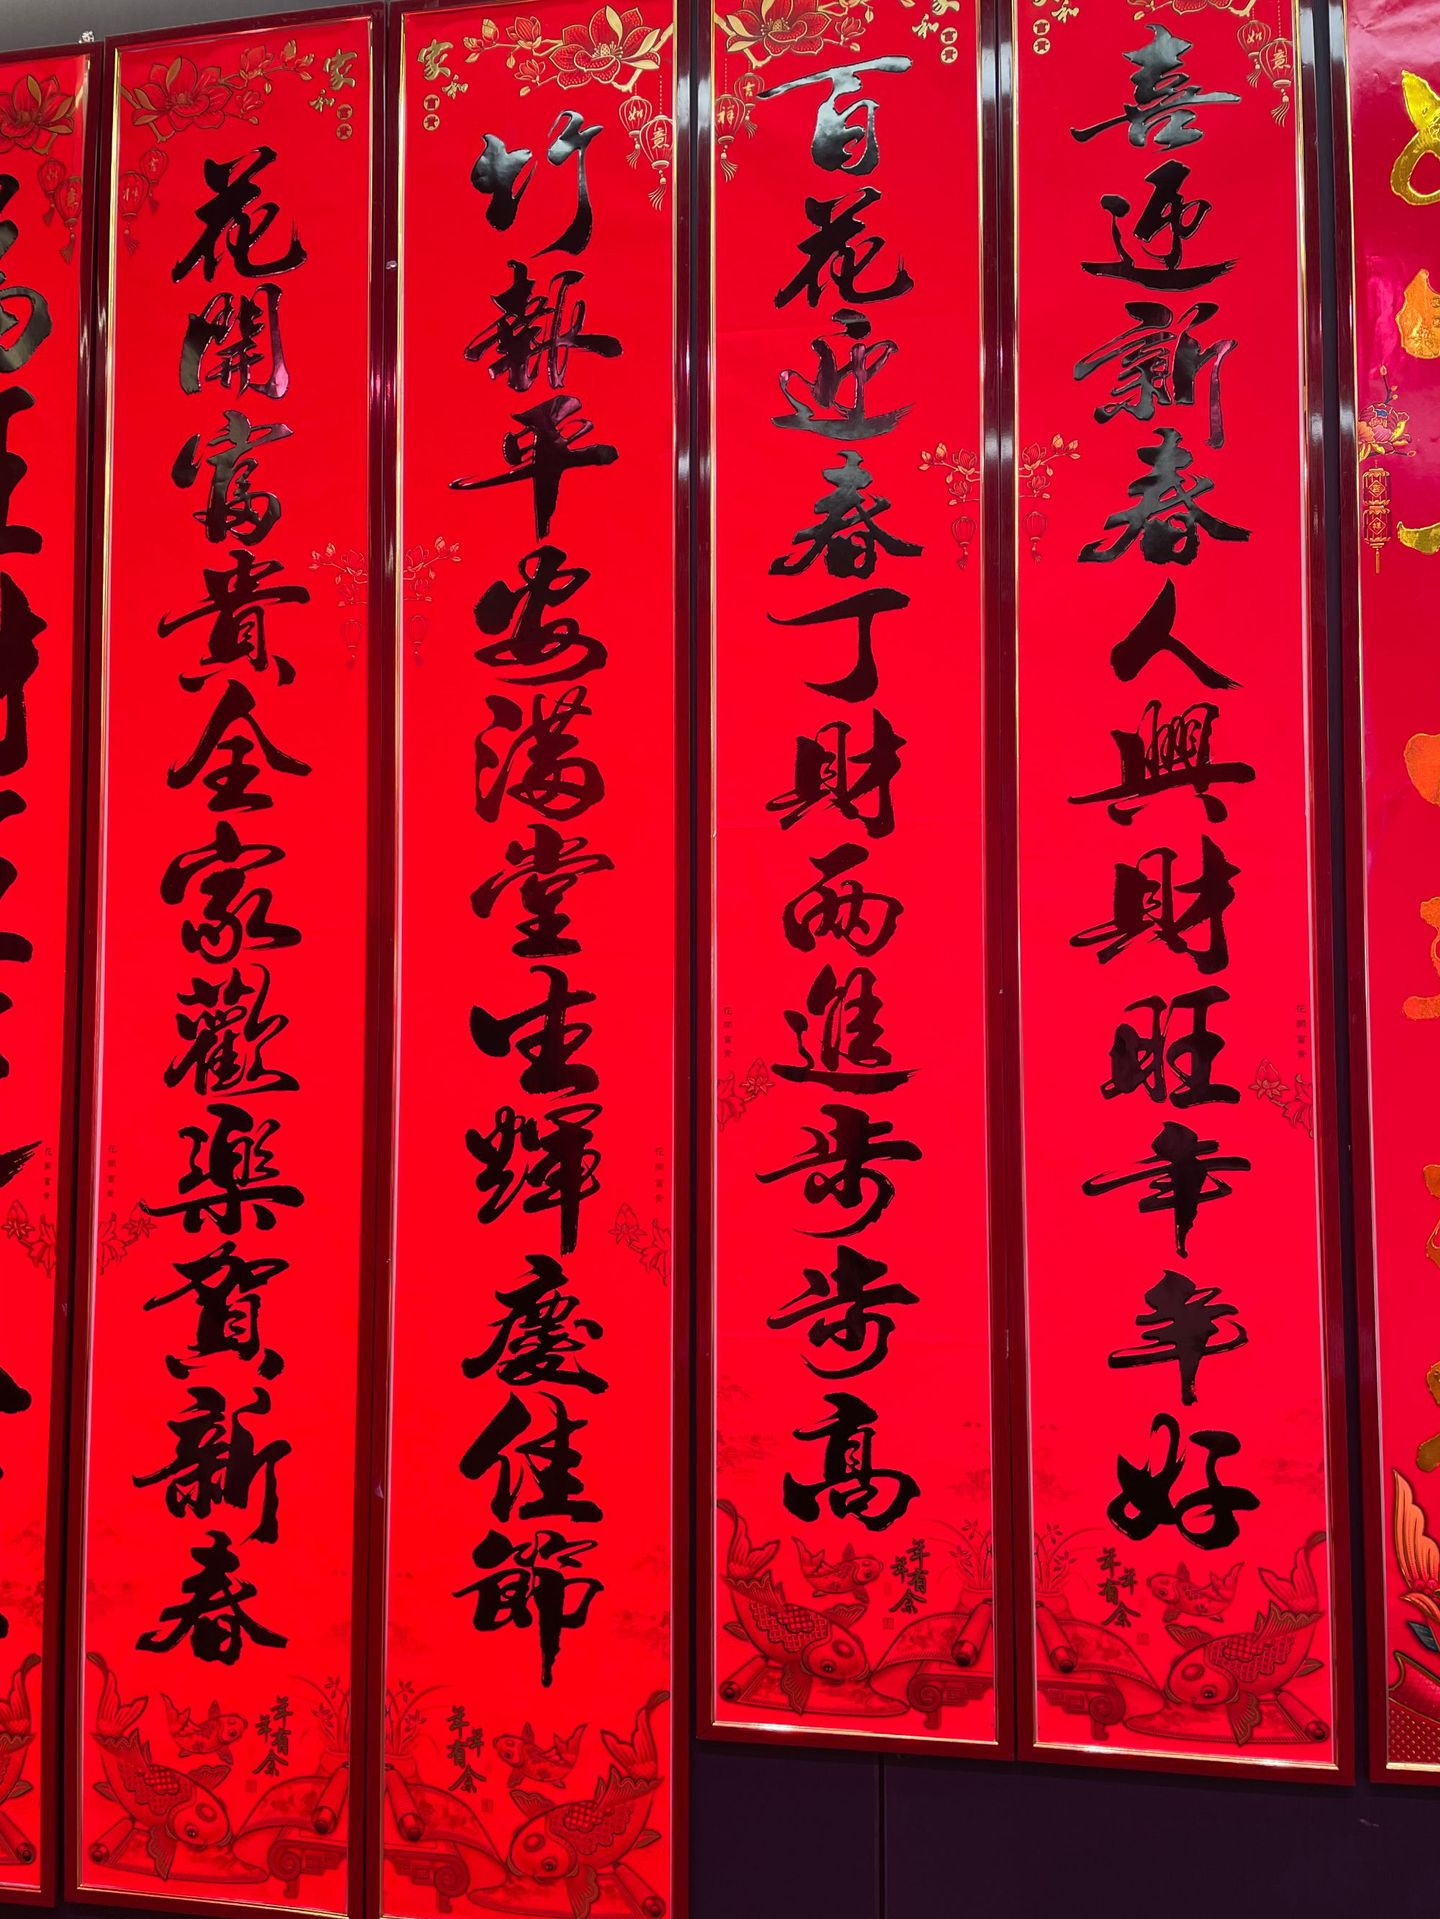 喜迎新春人興財旺年年好
百花迎春丁財兩進步步高
竹報平安满堂生輝慶佳節
花開富貴全家歡樂賀新春
家和富貴
家和富貴
如意
吉祥
如意
花開富貴
花開富貴
花開富貴
花開富貴
花開富貴
年年有余
年年有余
年年有余
年年有余